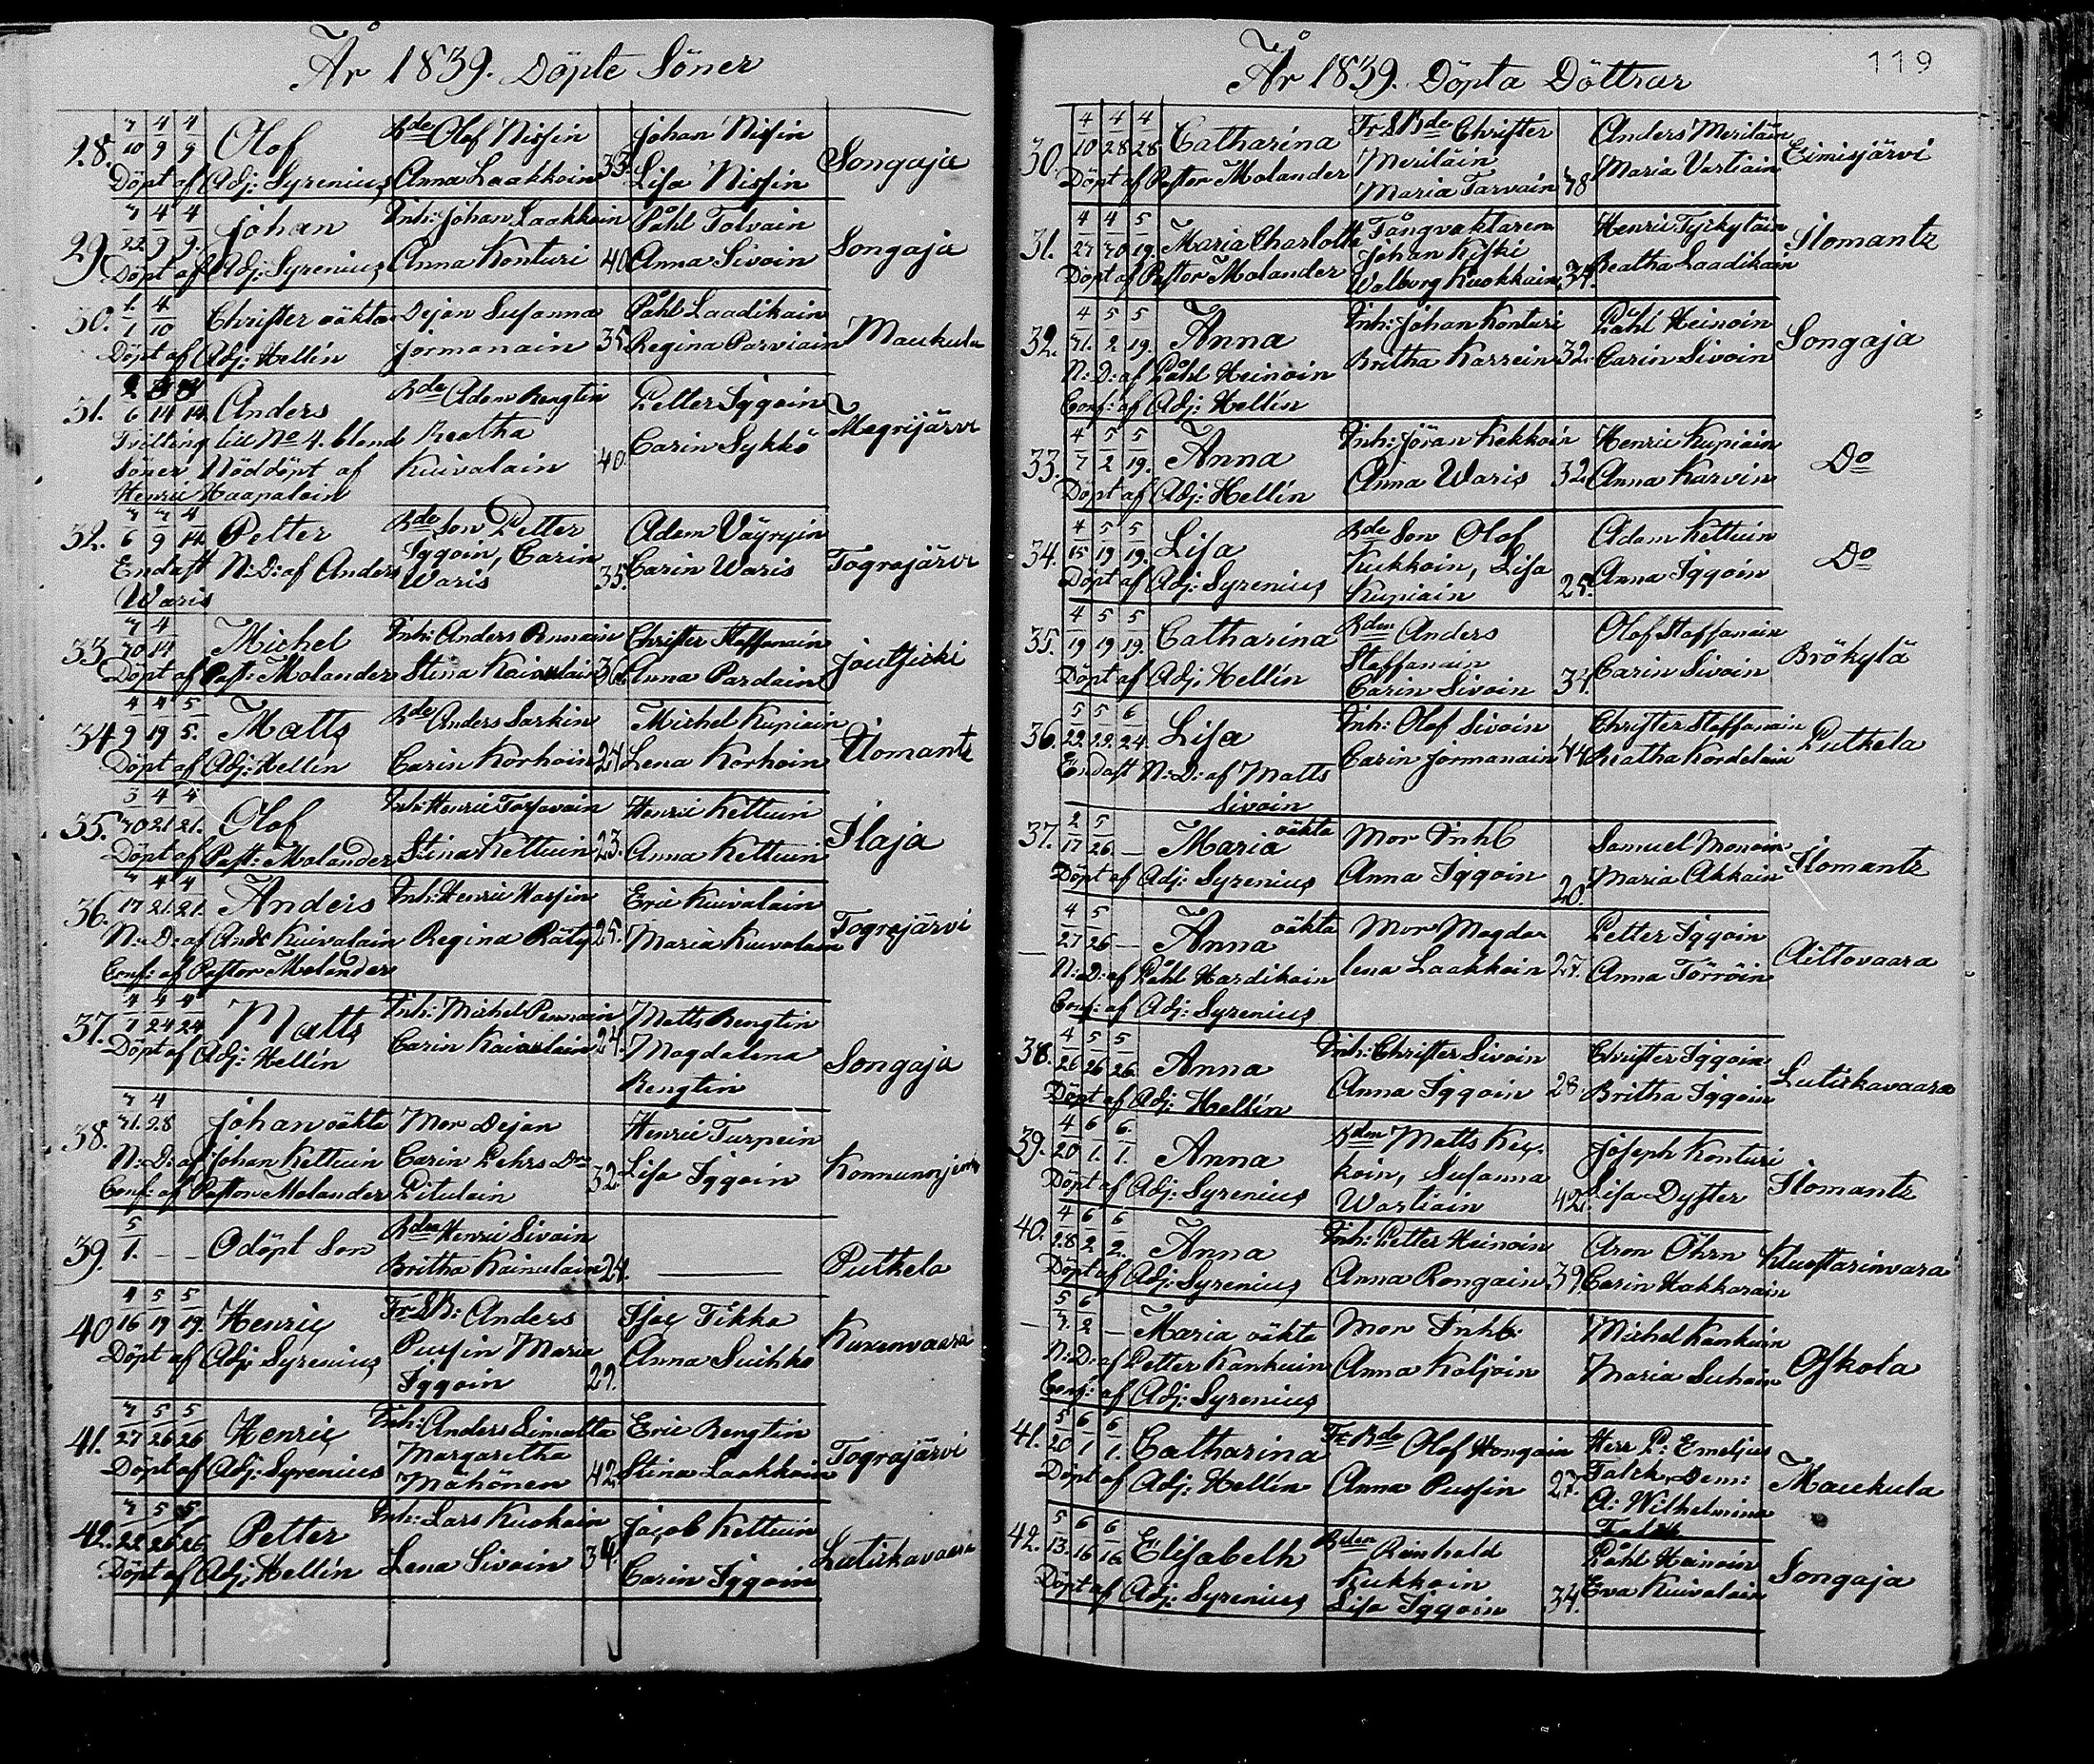 År 1839. Döpte Söner
28. 3 4 4 Olof Bde Olof Nissin Johan Nissin
10 9 9 Songaja
Döpt af Adj: Syrenius Anna Laakkoin 33. Lisa Nissin
3 4 4 Johan Inh: Johan Laakkoin Påhl Tolvain
29. 22 9 9. Songaja
Döpt af Adj: Syrenius Anna Konturi 40. Anna Sivoin
30. 1 4 Christer oäkta Dejan Susanna Påhl Laadikain
1 10 Maukula
Döpt af Adj: Hellin Jormanain 35. Regina Parviain
31. 6 14 14 Anders Bde Adam Rengtin Petter Iggoin
Trilling lik No 4. bland Beatha Megrijärvi
Söner Nöddöpt af Kuivalain 40. Carin Sykkö
Henric Haapalain
32. 3 3 4 Petter Bde Son Petter Adam Väyryin
6 9 14 Iggoin, Carin
Endast N: D: af Anders Waris 35. Carin Waris Tograjärvi
Waris
33. 3 4 Michel Inh: Anders Christer Staffanain
30 14 Joutjicki
Döpt af Past: Molander Stina Kainulain 36. Anna Pardain
4 4 5 Matts Bde Anders Sarkin Michel Kupiain
34. 9 19 5. Ilomants
Döpt af Adj: Hellin Carin Korhoin 24. Lena Korhoin
3 4 4 Olof Inh: Henric Henric Kettuin
35. 30 21 21. Ilaja
Döpt af Past: Molander Stina Kettuin 23. Anna Kettuin
3 4 4 Anders Inh: Henric Eric Kuivalain
36. 17 21. 21. Tograjärvi
N: D: af Ands Kuivalain Regina Räty 25. Maria Kuivalain
Conf: af Pastor Molander
4 4 4 Matts Inh: Michel Pennain Matts Rengtin
37. 1 24 24
Döpt af Adj: Hellin Carin Kainulain 24. Magdalena Songaja
Rengtin
3 4
38. 31. 28 Johan oäkta Mor Dejan Henric Turpein
N: D: af Johan Kettuin Carin Pehrs Dr
Conf: af Pastor Molander Pitulain 32. Lisa Iggoin
5
39. 1. — — Odöpt Son Bden Henric Sivoin
Britha Kainulain 24. — Putkela
4 5 5
40. 16 19 19. Henric Fr S B: Anders Isac Tikka
Döpt af Adj: Syrenius Pussin Maria Anna Suihko Kuxenvaara
Iggoin 29.
3 5 5
41. 27 26 26 Henric Inh: Anders Simatta Eric Rengtin
Döpt af Adj: Syrenius Margaretha Tograjärvi
Mähönen 42. Stina Laakkoin
3 5 5
42. 22 26 26 Petter Inh: Lars Kuokain Jacob Kettuin
Döpt af Adj: Hellin Lena Sivoin 34. Carin Iggoin Lutiskavaara
År 1839. Döpta Döttrar 119
4 4 4
30. 10 28 28 Catharina Fr S Bde Christer Anders Meriläin
Meriläin Maria Vartiain Eimisjärvi
Döpt af Pastor Molander Maria Tarvain 38
4 4 5
31. 27 30 19. Maria Charlotta Fångvaktaren Henric Tyrkyläin
Johan Kiski Ilomants
Döpt af Pastor Molander Walborg Kuokkain 34. Beatha Laadikain
4 5 5
32. 31. 2 19. Anna Inh: Johan Konturi Påhl Heinoin
N: D: af Påhl Heinoin Britha Karrein 32. Carin Sivoin Songaja
Conf: af Adj: Hellin
4 5 5
33. 7 2 19. Anna Inh: Jöran Kekkoin Henric Kupiain
Döpt af Adj: Hellin Anna Waris 32. Anna Karvin Do
4 5 5
34. 15 19 19. Lisa Bde Son Olof Adam Kettuin
Kukkoin, Lisa Do
Döpt af Adj: Syrenius Kupiain 25. Anna Iggoin
4 5 5
35. 19 19 19. Catharina Bden Anders Olof Staffanain
Staffanain Brökylä
Döpt af Adj: Hellin Carin Sivoin 34. Carin Sivoin
5 5 6
36. 22. 22. 24. Lisa Inh: Olof Sivoin Christer Staffanain
Endast N: D: af Matts Carin Jormanain 44. Beatha Kordelain Putkela
Sivoin
2 5 oäkta
37. 17 26 — Maria Mor Inh Samuel Monoin
Döpt af Adj: Syrenius Anna Iggoin 20. Maria Akkain Ilomants
4 5 oäkta
— 27 26 — Anna Mor Magda- Petter Iggoin
N: D: af Påhl Hardikain lena Laakkoin 27. Anna Törröin Aittovaara
Conf: af Adj: Syrenius
4 5 5
38. 26 26 26. Anna Inh: Christer Sivoin Christer Iggoin
Döpt af Adj: Hellin Anna Iggoin 28. Britha Iggoin Lutiskavaara
4 6 6
39. 20 1. 1. Anna Bden Matts Key- Joseph Konturi
koin, Susanna Ilomants
Döpt af Adj: Syrenius Wartiain 42. Lisa Dyster
4 6 6
40. 28 2 2. Anna Inh: Petter Heinoin Aron Öhrn
Döpt af Adj: Syrenius Anna Rongain 39. Carin Hakkarain
5 6
— 3. 2 — Maria oäkta Mor Inh: Michel Kankuin
N: D: af Petter Kankuin Anna Koljoin Maria Suhoin Oskola
Conf: af Adj: Syrenius
5 6 6
41. 20 1 1. Catharina Fr Bde Olof Hongain Herr P: Emelius
Döpt af Adj: Hellin Anna Pussin 27. Falck, Dem: Maukula
A: Wilhelmina
Falck
5 6 6
42. 13. 16 16. Elisabeth Bden Reinhold Påhl Heinoin
Kukkoin Songaja
Döpt af Adj: Syrenius Lisa Iggoin 34. Eva Kuivalain